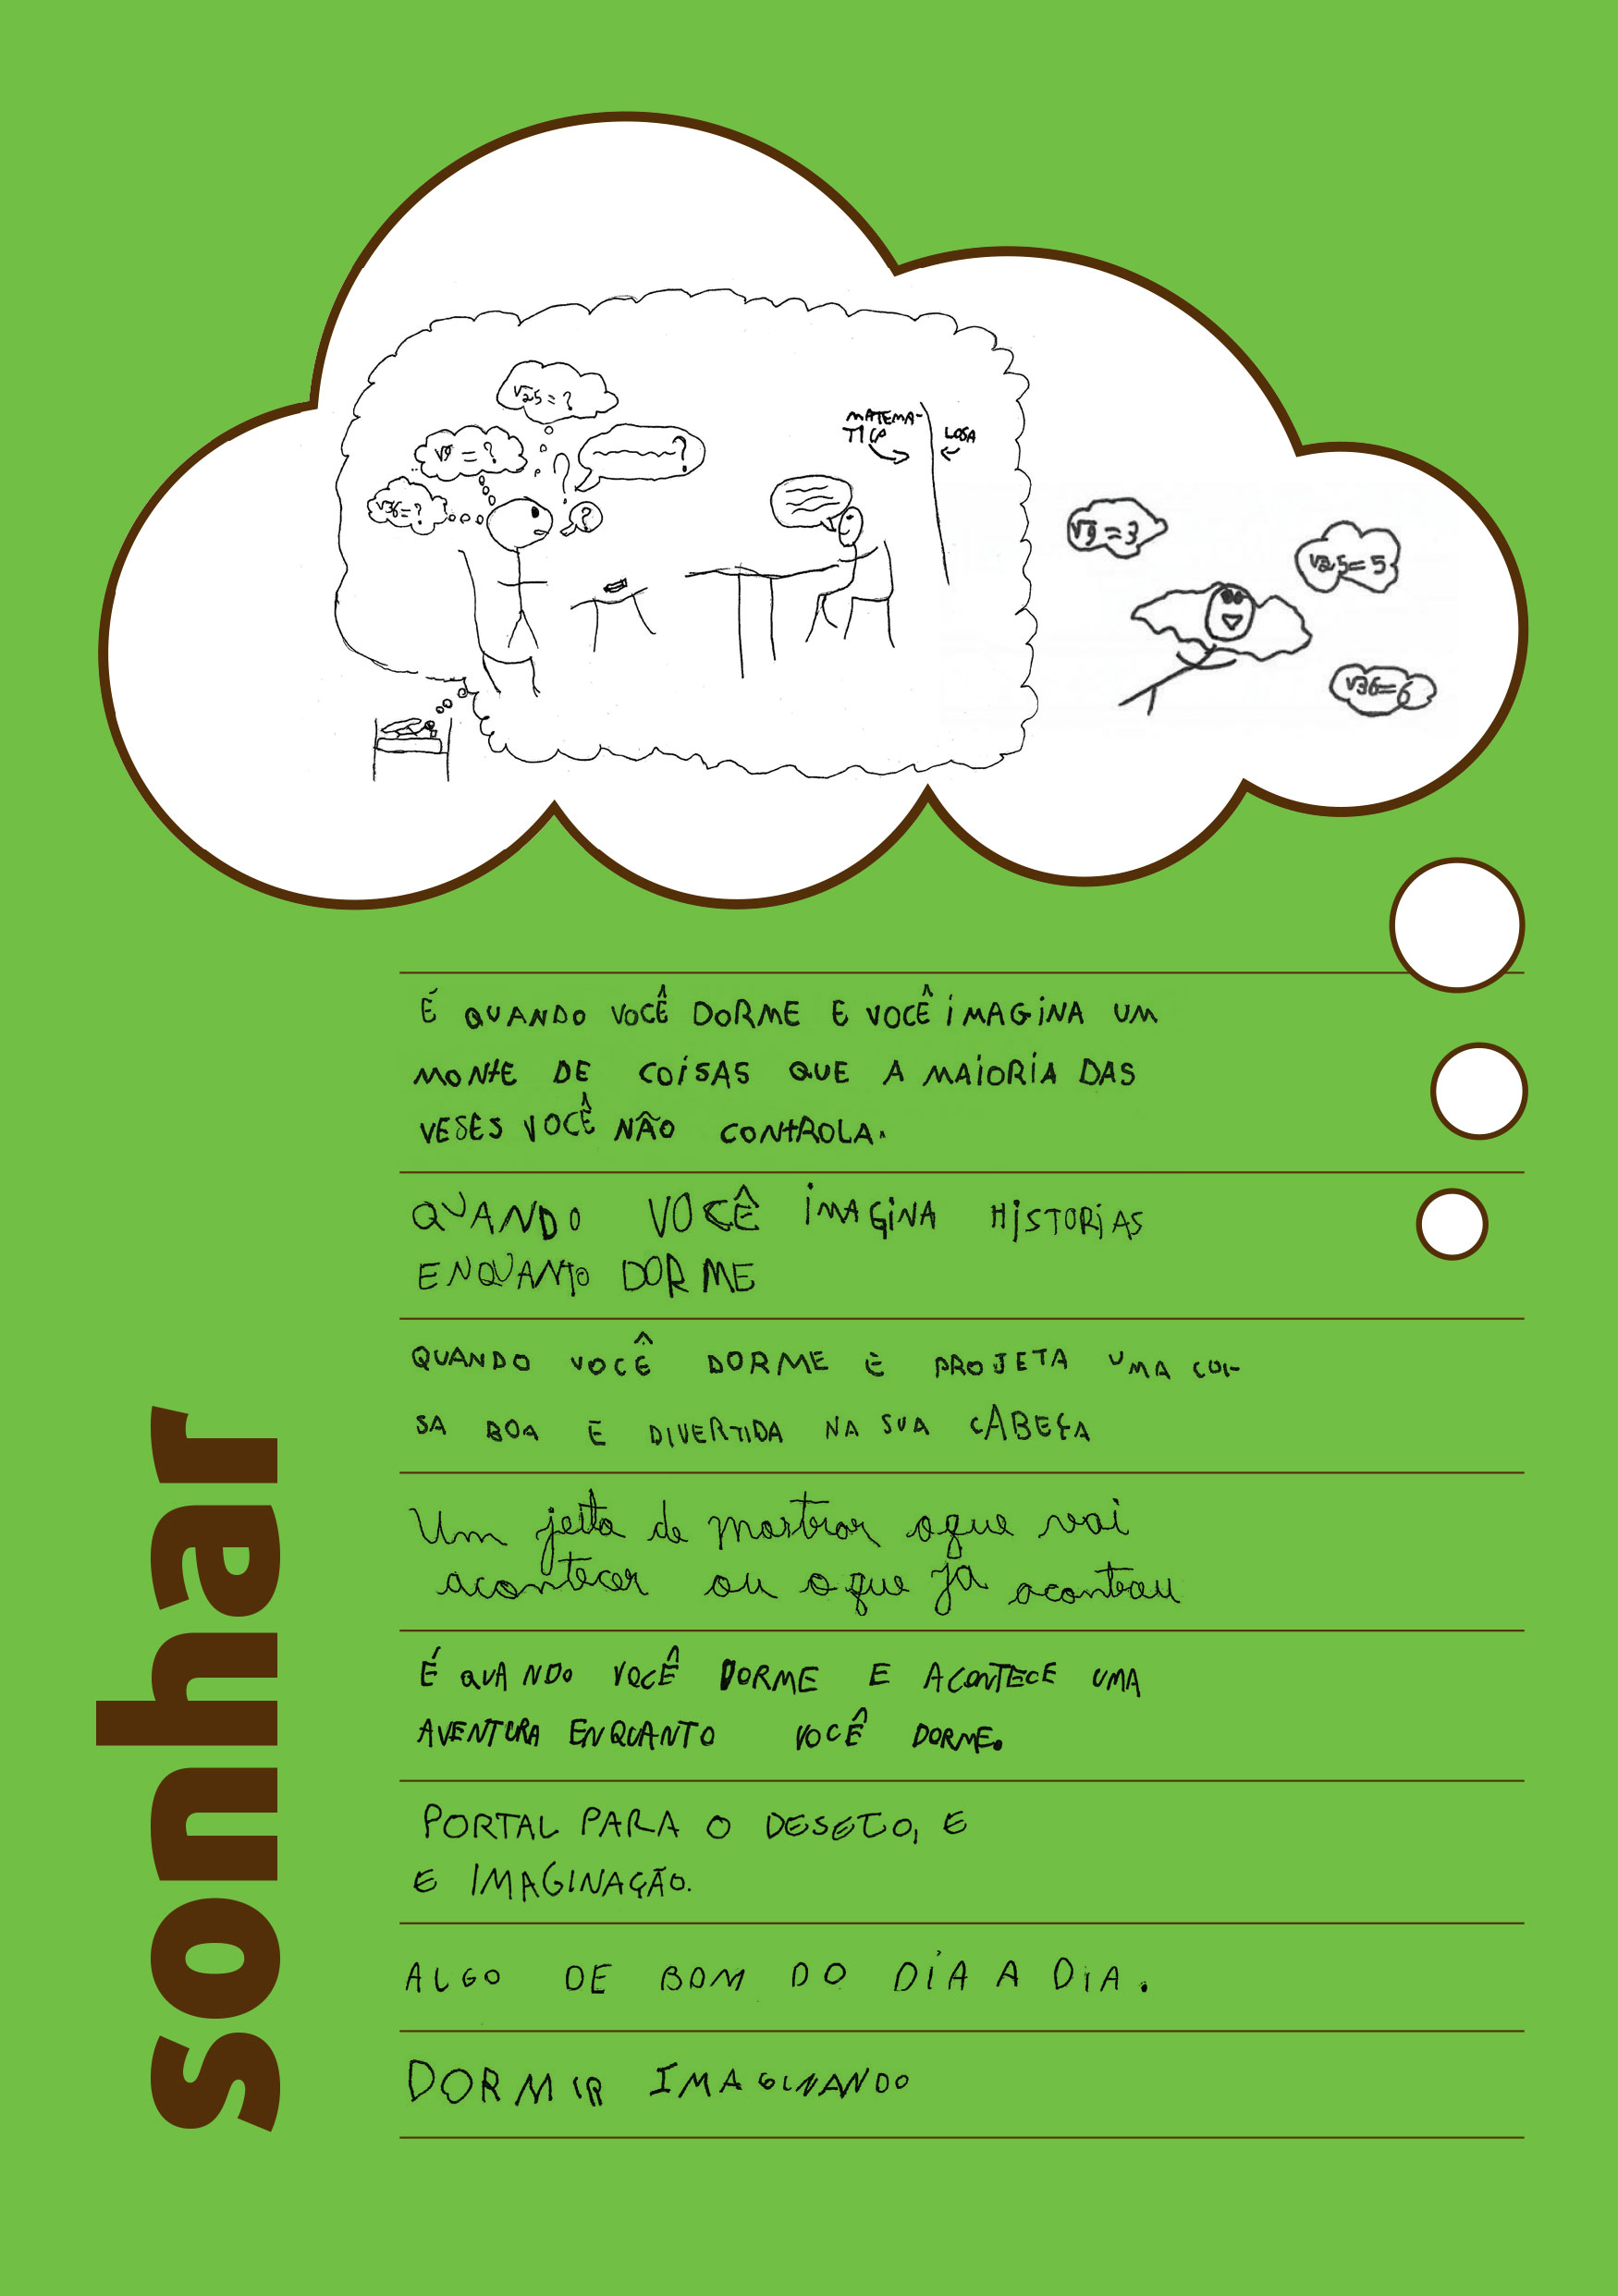 √25=?
√9=?
√36=?
?
?
?
MATEMA-
TICA
LOSA
√9=3
√25=5
√36=6
sonhar
É QUANDO VOCÊ DORME E VOCÊ IMAGINA UM
MONTE DE COISAS QUE A MAIORIA DAS
VESES VOCÊ NÃO CONTROLA.
QUANDO VOCÊ IMAGINA HISTORIAS
ENQUANTO DORME
QUANDO VOCÊ DORME E PROJETA UMA COI-
SA BOA E DIVERTIDA NA SUA CABEÇA
Um jeito de mostrar oque vai
acontecer ou o que já aconteceu
É QUANDO VOCÊ DORME E ACONTECE UMA
AVENTURA ENQUANTO VOCÊ DORME.
PORTAL PARA O DESEJO, E
E IMAGINAÇÃO.
ALGO DE BOM DO DIA A DIA.
DORMIR IMAGINANDO